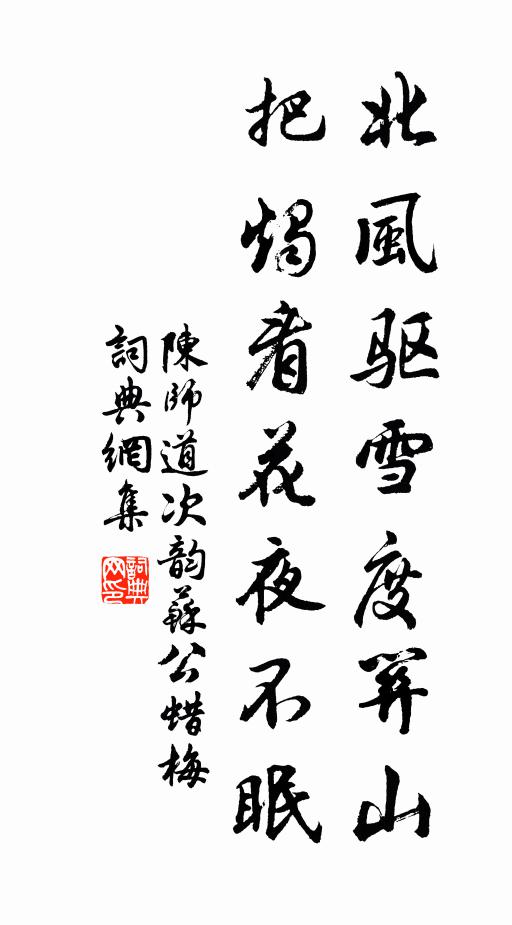 北風驱雪度関山
把燭看花夜不眠
陳師道次韵蘇公蜡梅
詞典網集
詞典网印